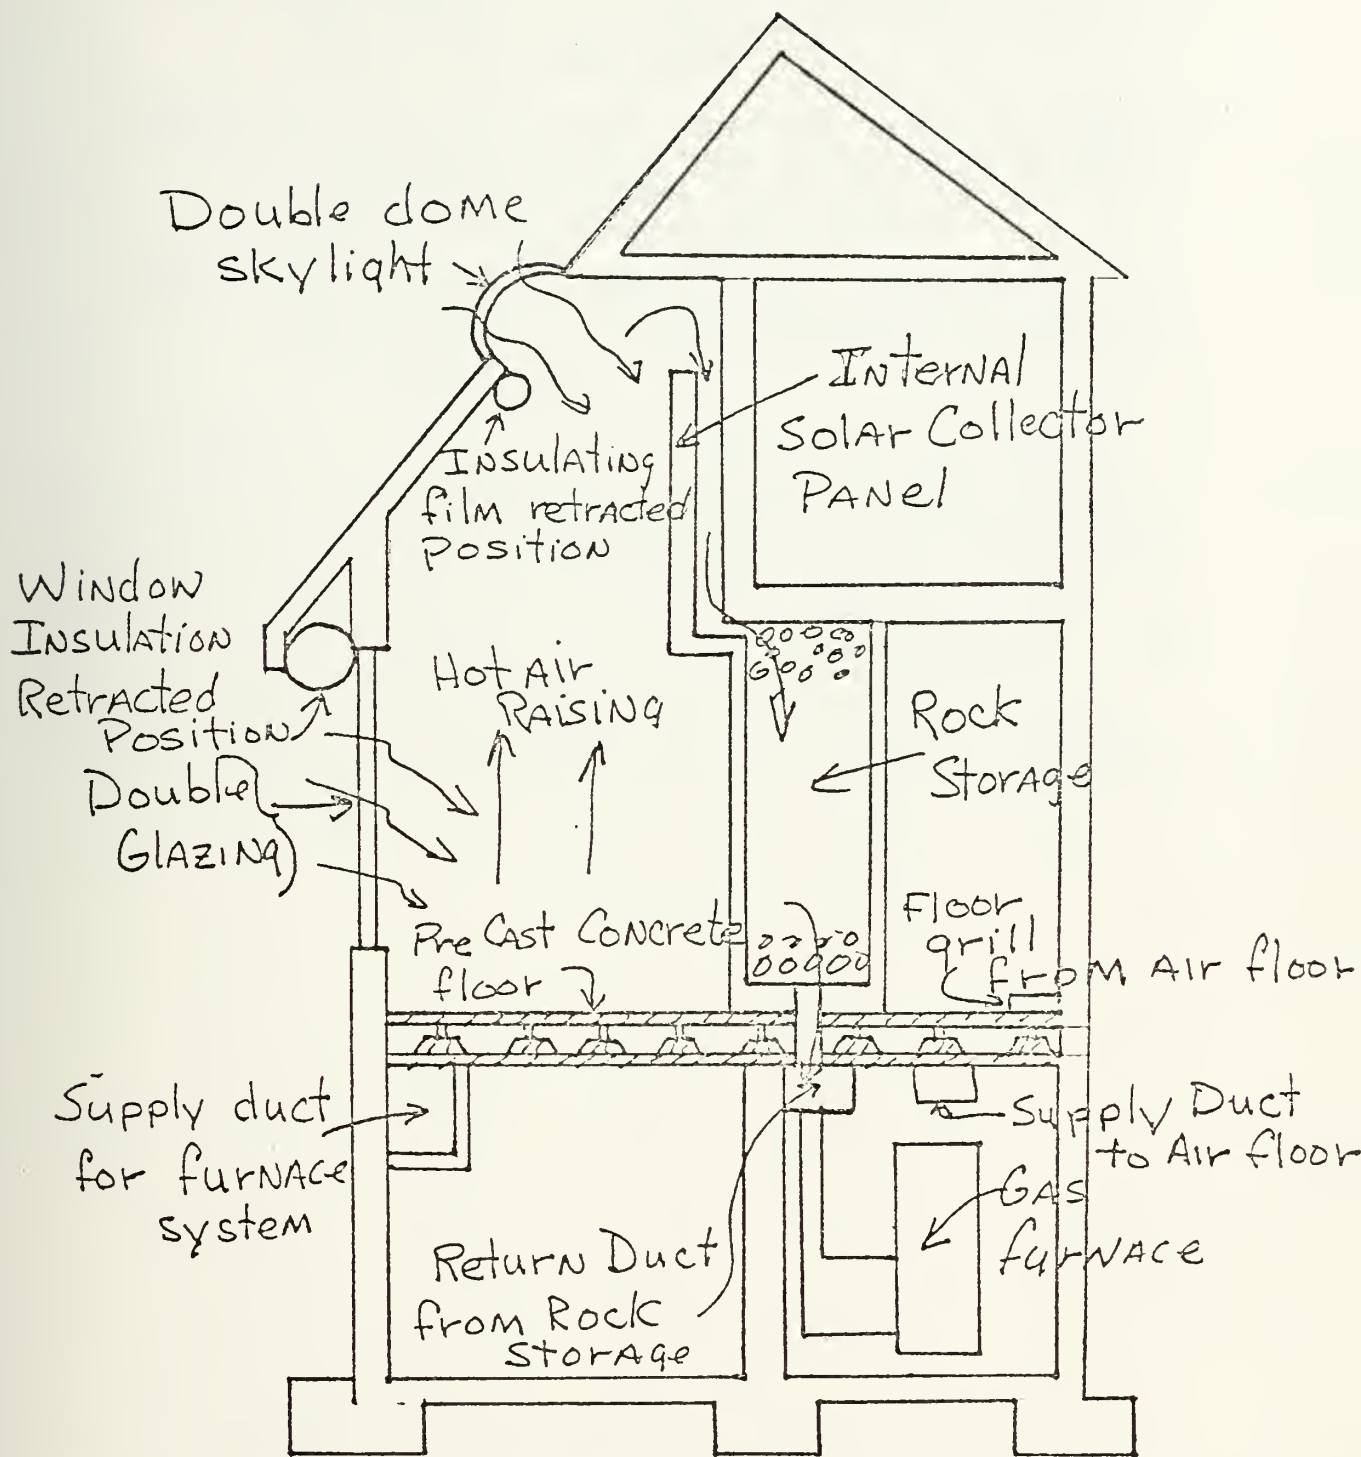 Double dome
skylight
Internal
Solar Collector
Panel
Insulating
film retracted
Position
Window
Insulation
Retracted
Position
Hot Air
Raising
Rock
Storage
Double
Glazing
Pre Cast Concrete
floor
Floor
grill
from Air floor
Supply duct
for furnace
system
Supply Duct
to Air floor
Gas
furnace
Return Duct
from Rock
Storage